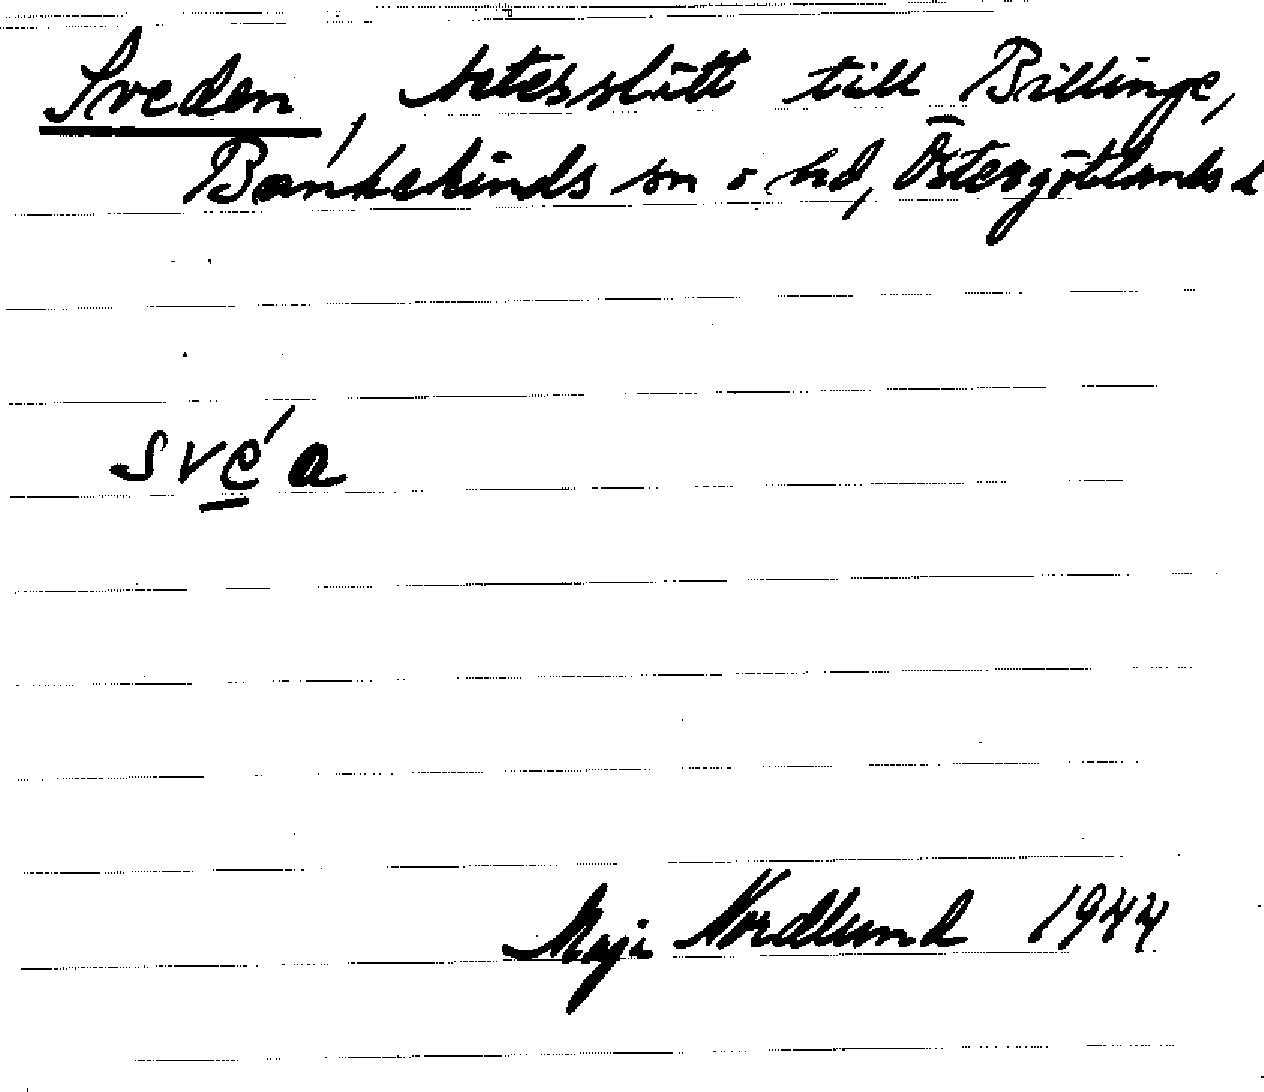 Sveden, betesslätt till Billinge,
Bankekinds sn o hd, Östergötlands l
své̱a
Maji Nordlund 1944